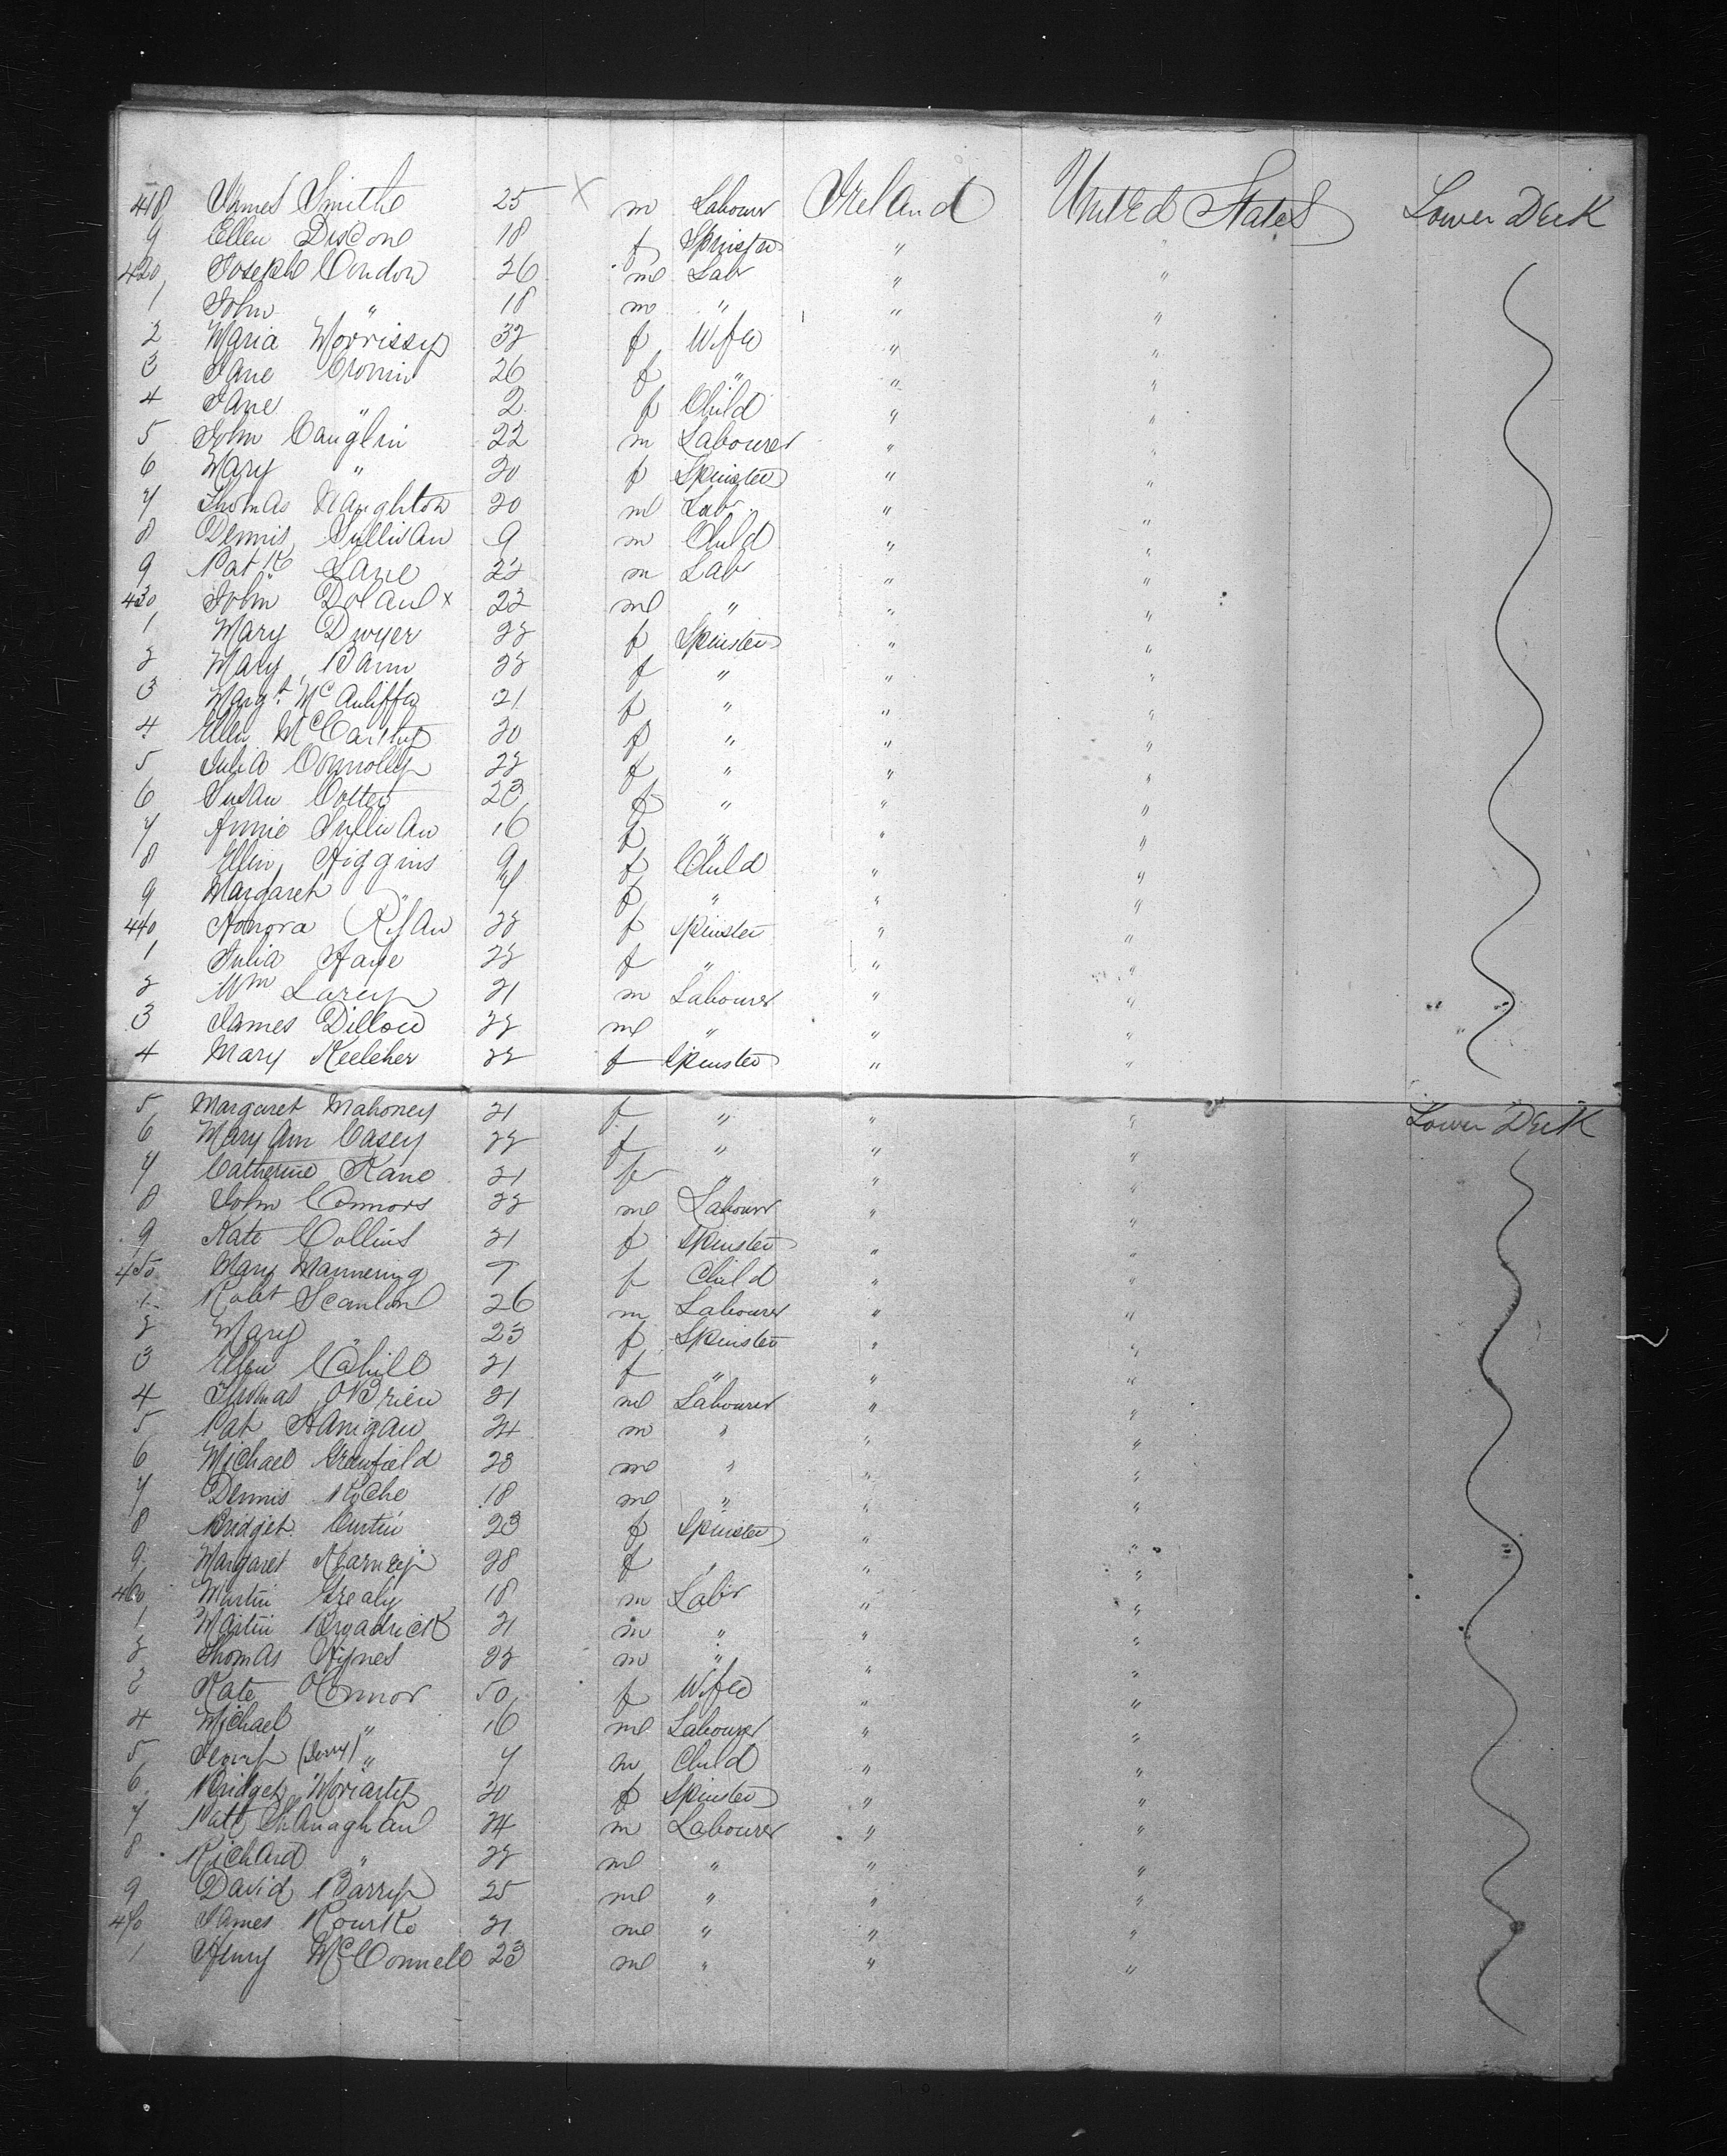 418 James Smith 25 X m Labourr Ireland United States Lower Deck
9 Ellen 18 f Spinster " "
420 Joseph Condon 26 m Labr " "
1 John " 18 m " " "
2 Maria Morrissey 32 f Wife " "
3 Jane Cronin 26 f " " "
4 Jane " 2 f Child " "
5 John Cauglin 22 m Labourer " "
6 Mary " 20 f Spinster " "
7 Thomas Naughton 20 m Labr " "
8 Dennis Sullivan 9 m Child " "
9 Patk Lane 22 m Labr " "
430 John Doland x 22 m " " "
1 Mary Dwyer 22 f Spinster " "
2 Mary Bann 22 f " " "
3 Margt McAuliffe 21 f " " "
4 Ellen McCarthy 20 f " " "
5 Julia Connolly 22 f " " "
6 Susan Cotter 23 f " " "
7 Annie Sullivan 16 f " " "
8 Ellen Higgins 9 f Child " "
9 Margaret " 7 f " " "
440 Honora Ryan 22 f Spinster " "
1 Julia Haye 22 f " " "
2 Wm Larey 21 m Labourer " "
3 James Dillon 22 m " " "
4 Mary Keeleher 22 f Spinster " "
5 Margaret Mahoney 21 f " " " Lower Deck
6 Mary Ann Casey 22 f " " "
7 Catherine Kane 21 f " " "
8 John Connors 22 m Labourr " "
9 Kate Collins 21 f Spinster " "
450 Mary Mannering 7 f Child " "
1 Robt Scanlon 26 m Labourer " "
2 Mary " 23 f Spinster " "
3 Ellen Cahill 21 f " " "
4 Thomas OBrien 21 m Labourer " "
5 Pat Hanigan 24 m " " "
6 Michael Greenfield 28 m " " "
7 Dennis Roche 18 m " " "
8 Bridget Curtin 23 f Spinster " "
9 Margaret Kearney 28 f " " "
460 Martin Grealy 18 m Labr " "
1 Martin Broadrick 21 m " " "
2 Thomas Hynes 22 m " " "
3 Kate OConnor 50 f Wife " "
4 Michael " 16 m Labourer " "
5 (Jerry) " 7 m Child " "
6 Bridget Moriarty 20 f Spinster " "
7 Patt Shanaghan 24 m Labourer " "
8 Richard " 22 m " " "
9 David Barry 25 m " " "
470 James Rourke 21 m " " "
1 Henry McConnell 23 m " " "